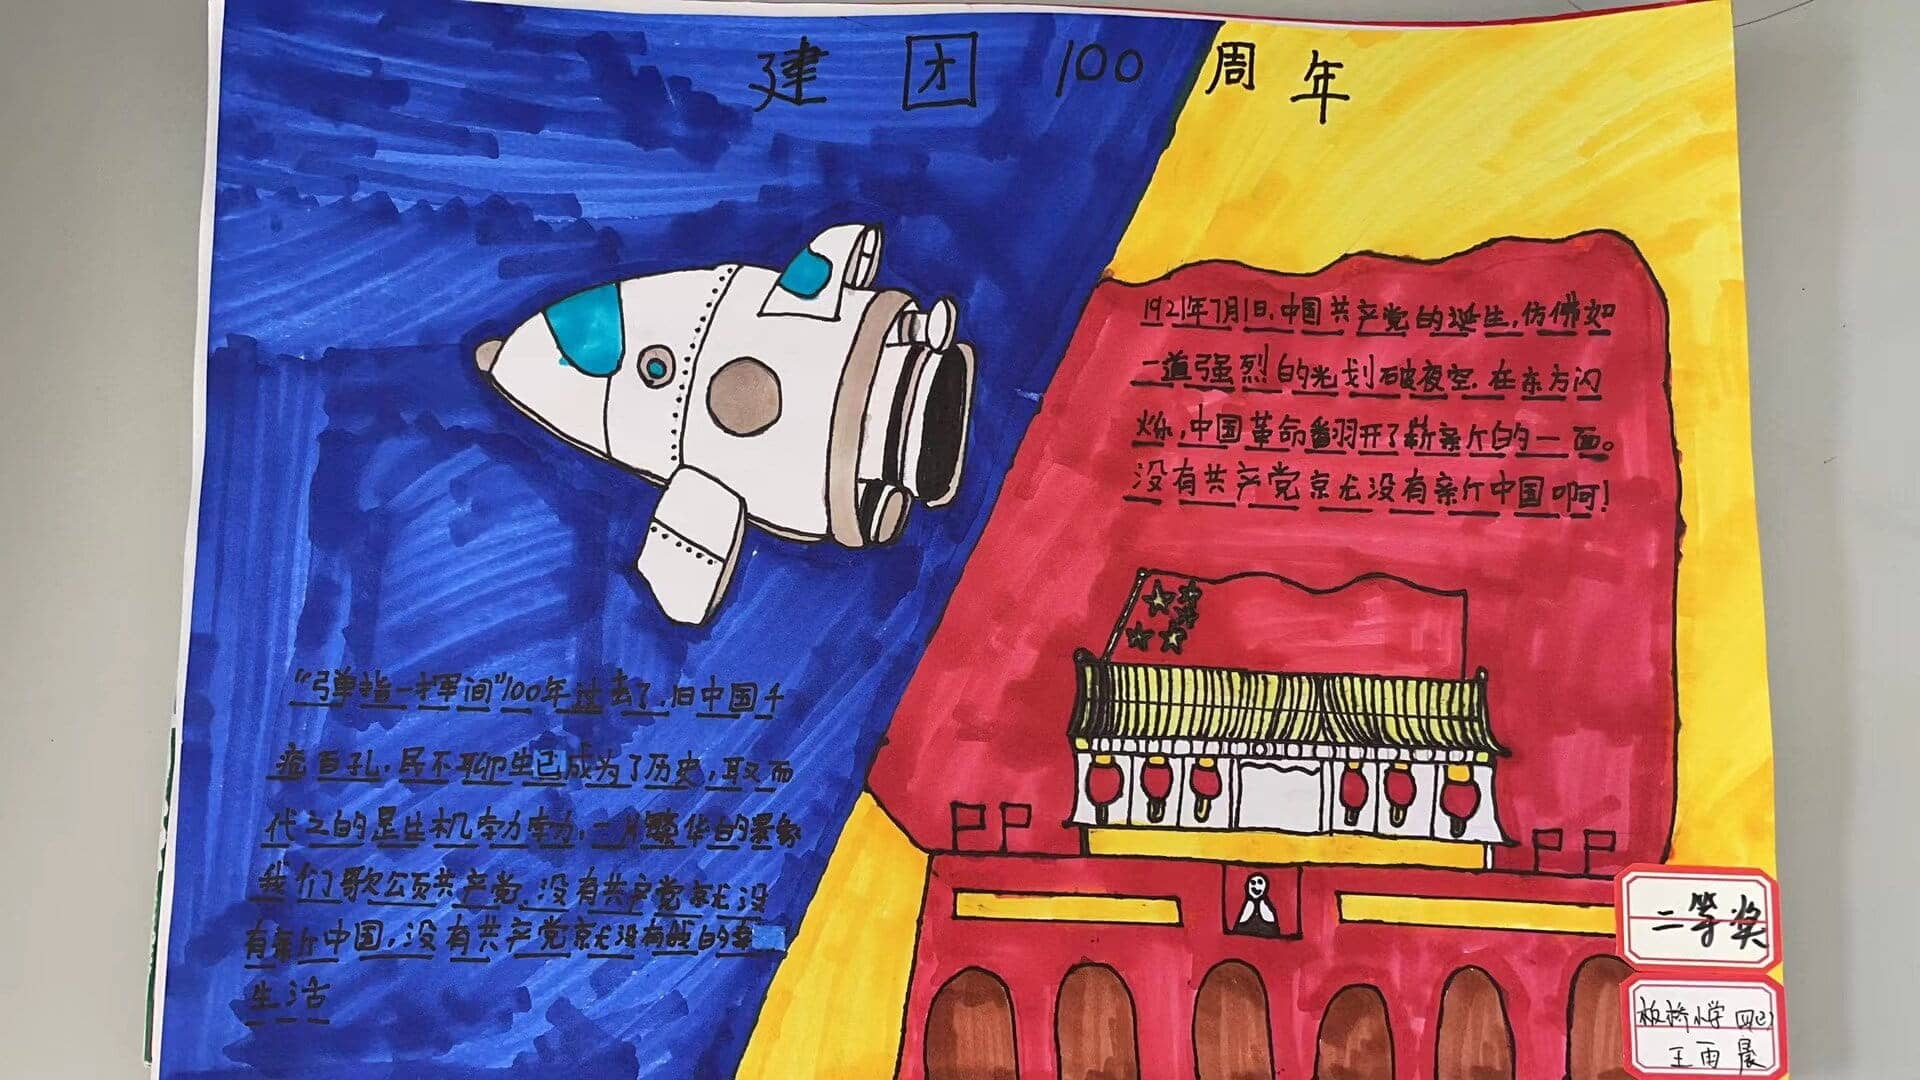 建团100周年
1921年7月1日,中国共产党的诞生,仿佛如
一道强烈的光划破夜空,在东方闪
烁,中国革命翻开了新的一面。
没有共产党就没有新中国啊!
"弹指一挥间"100年过去了,旧中国千
疮百孔,民不聊生已成为了历史,取而
代之的是生机勃勃,一片繁华的景象
我们歌颂共产党,没有共产党就没
有新中国,没有共产党就没有我的幸
生活
二等奖
板桥小学 四(2)
王雨晨